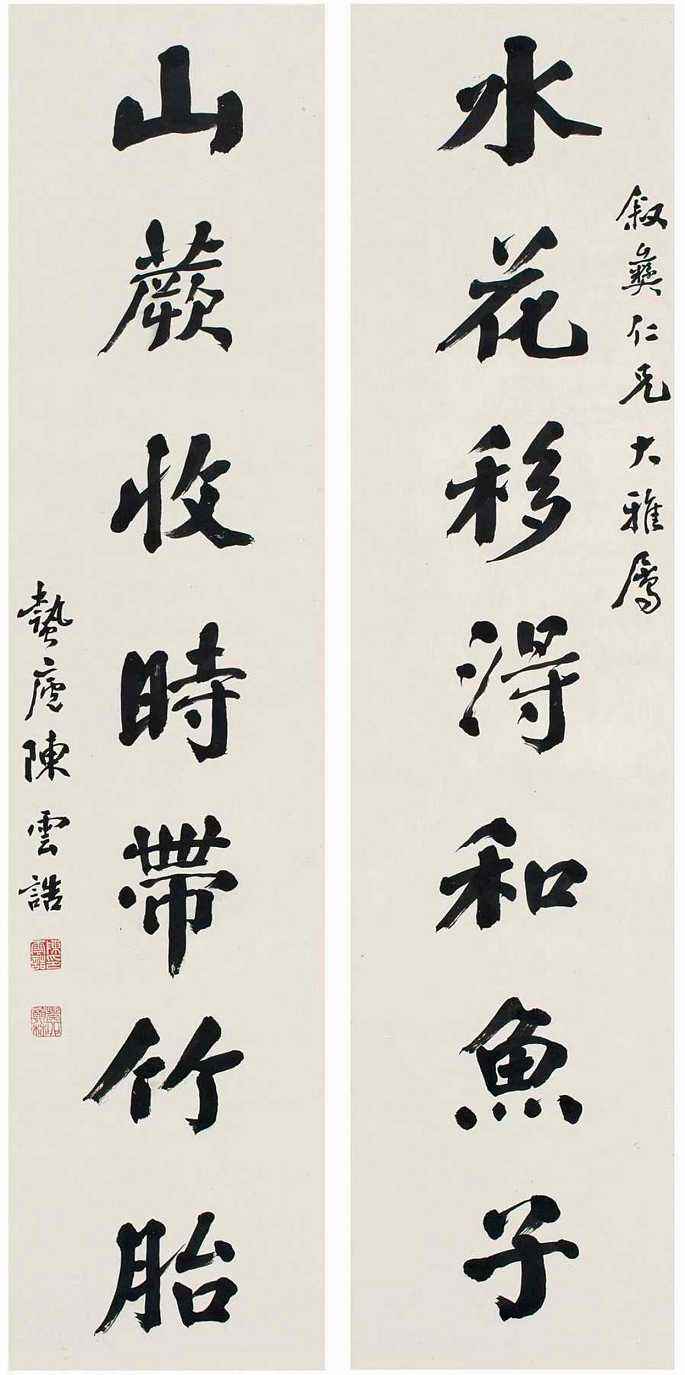 叙彝仁兄大雅属
水花移得和魚子
山蕨收時帶竹胎
蟄廬陳雲誥